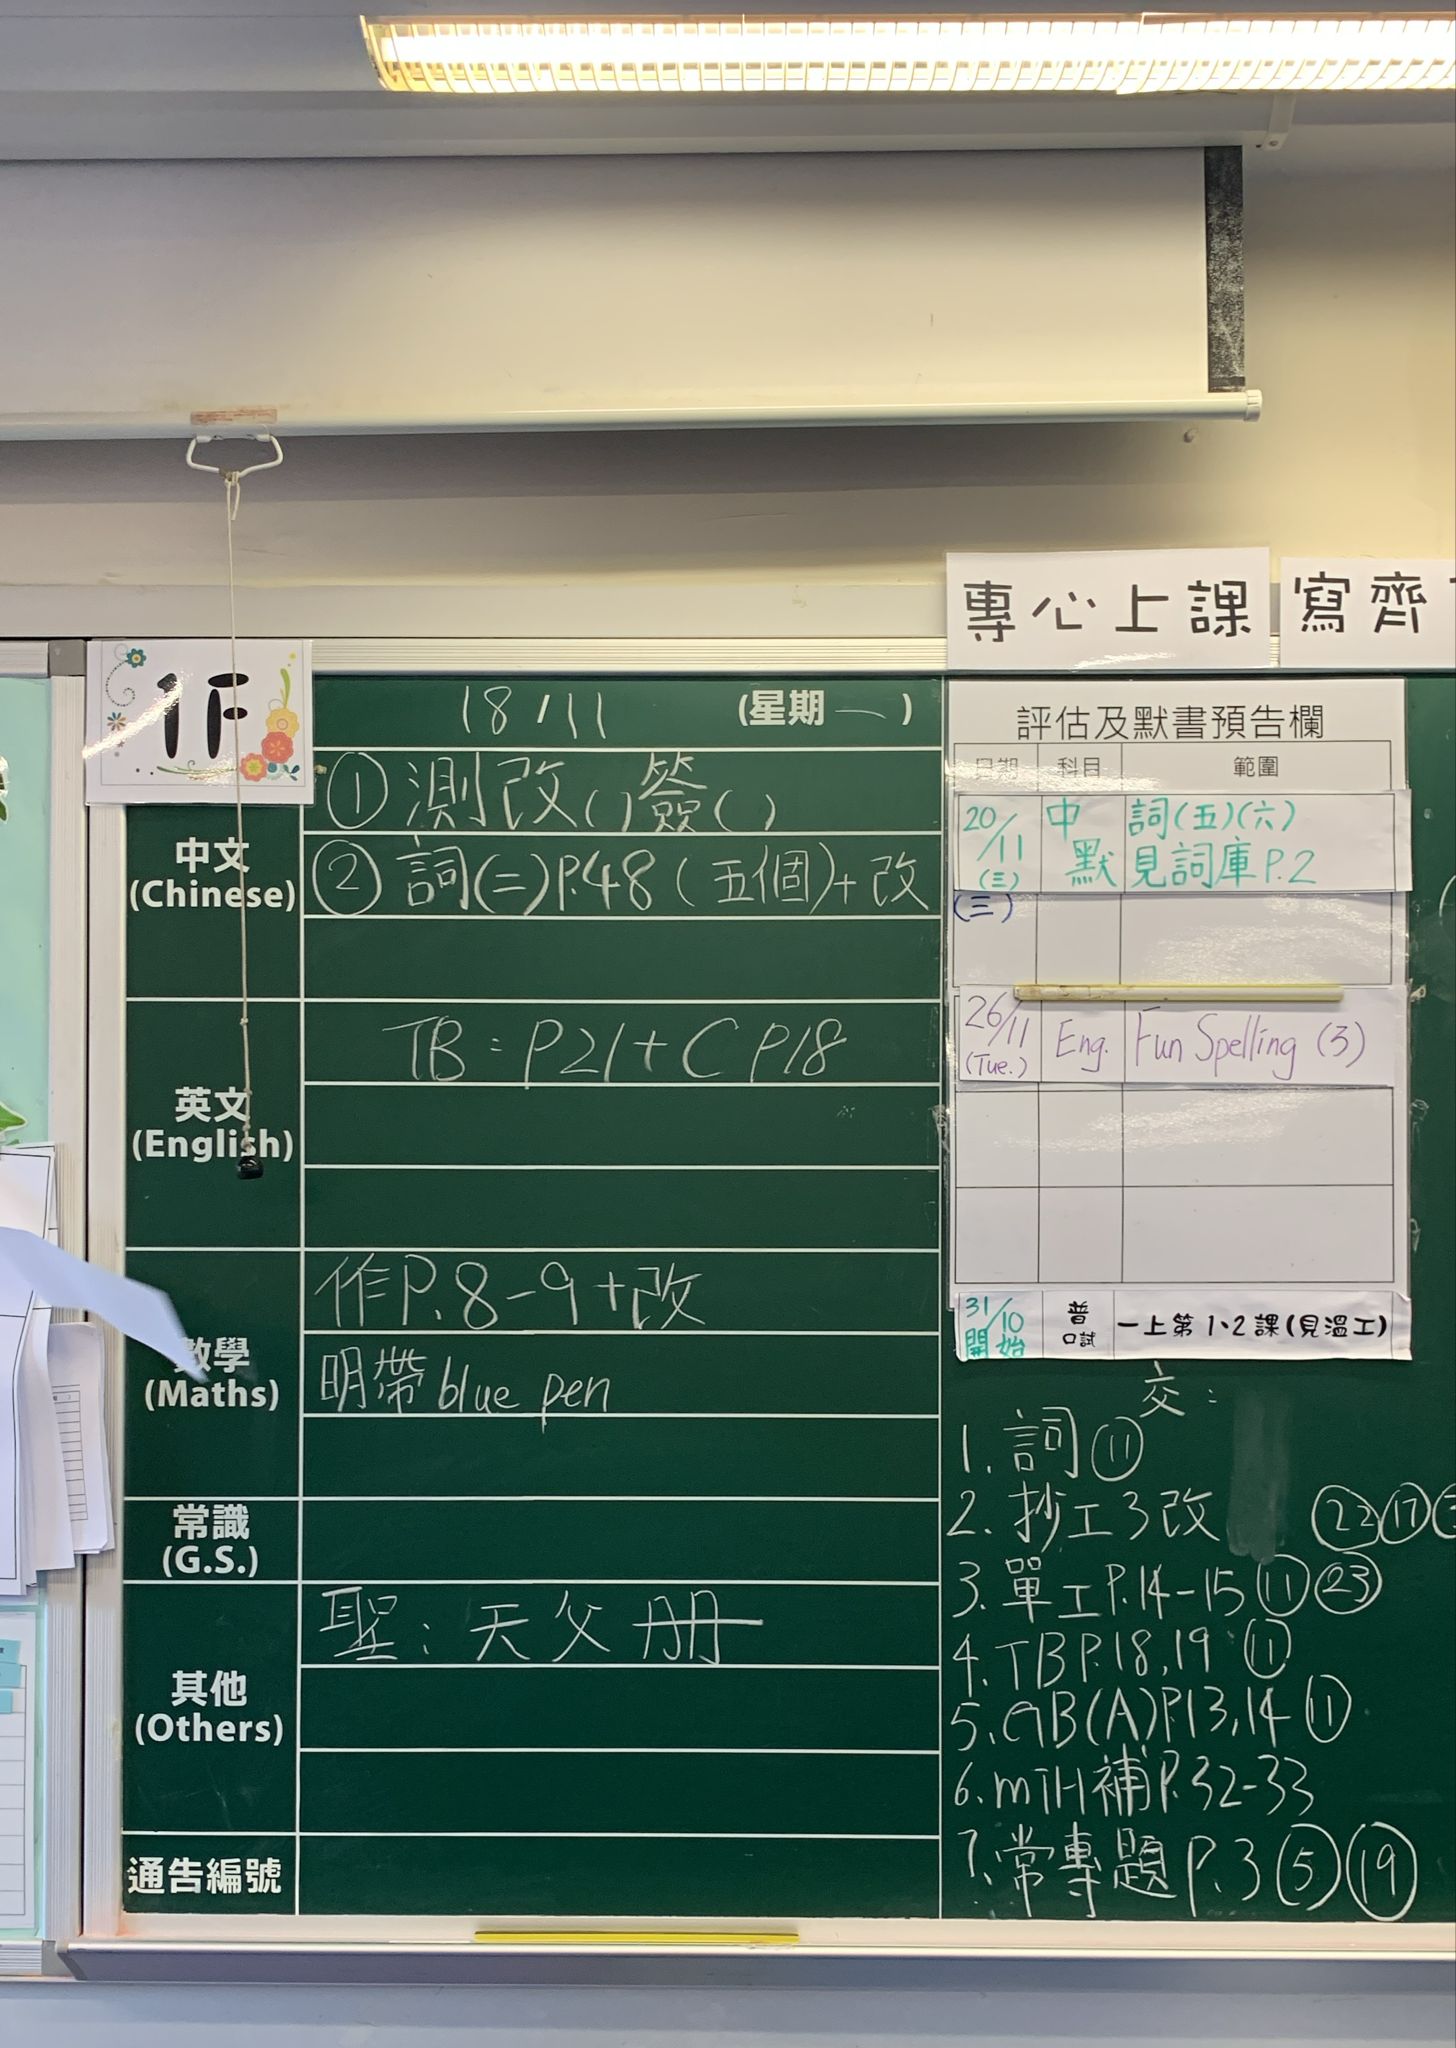 專心上課 寫齊
1F
18/11 (星期一)
中文
(Chinese)
① 測改( )簽( )
② 詞(二)P.48(五個)+改
英文
(English)
TB: P21+C P18
數學
(Maths)
作P.8-9+改
明帶blue pen
常識
(G.S.)
其他
(Others)
聖:天父册
通告編號
評估及默書預告欄
日期 科目 範圍
20/11 (三) 中默 詞(五)(六) 見詞庫P.2
(三)
26/11 (Tue.) Eng. Fun Spelling (3)
31/10 開始 普口試 一上第1、2課(見溫工)
交:
1. 詞 ⑪
2. 抄工3改 ㉒ ⑰
3. 單工P.14-15 ⑪ ㉓
4. TB P.18,19 ⑪
5. GB(A)P.13,14 ⑪
6. mTH補P.32-33
7. 常專題P.3 ⑤ ⑲